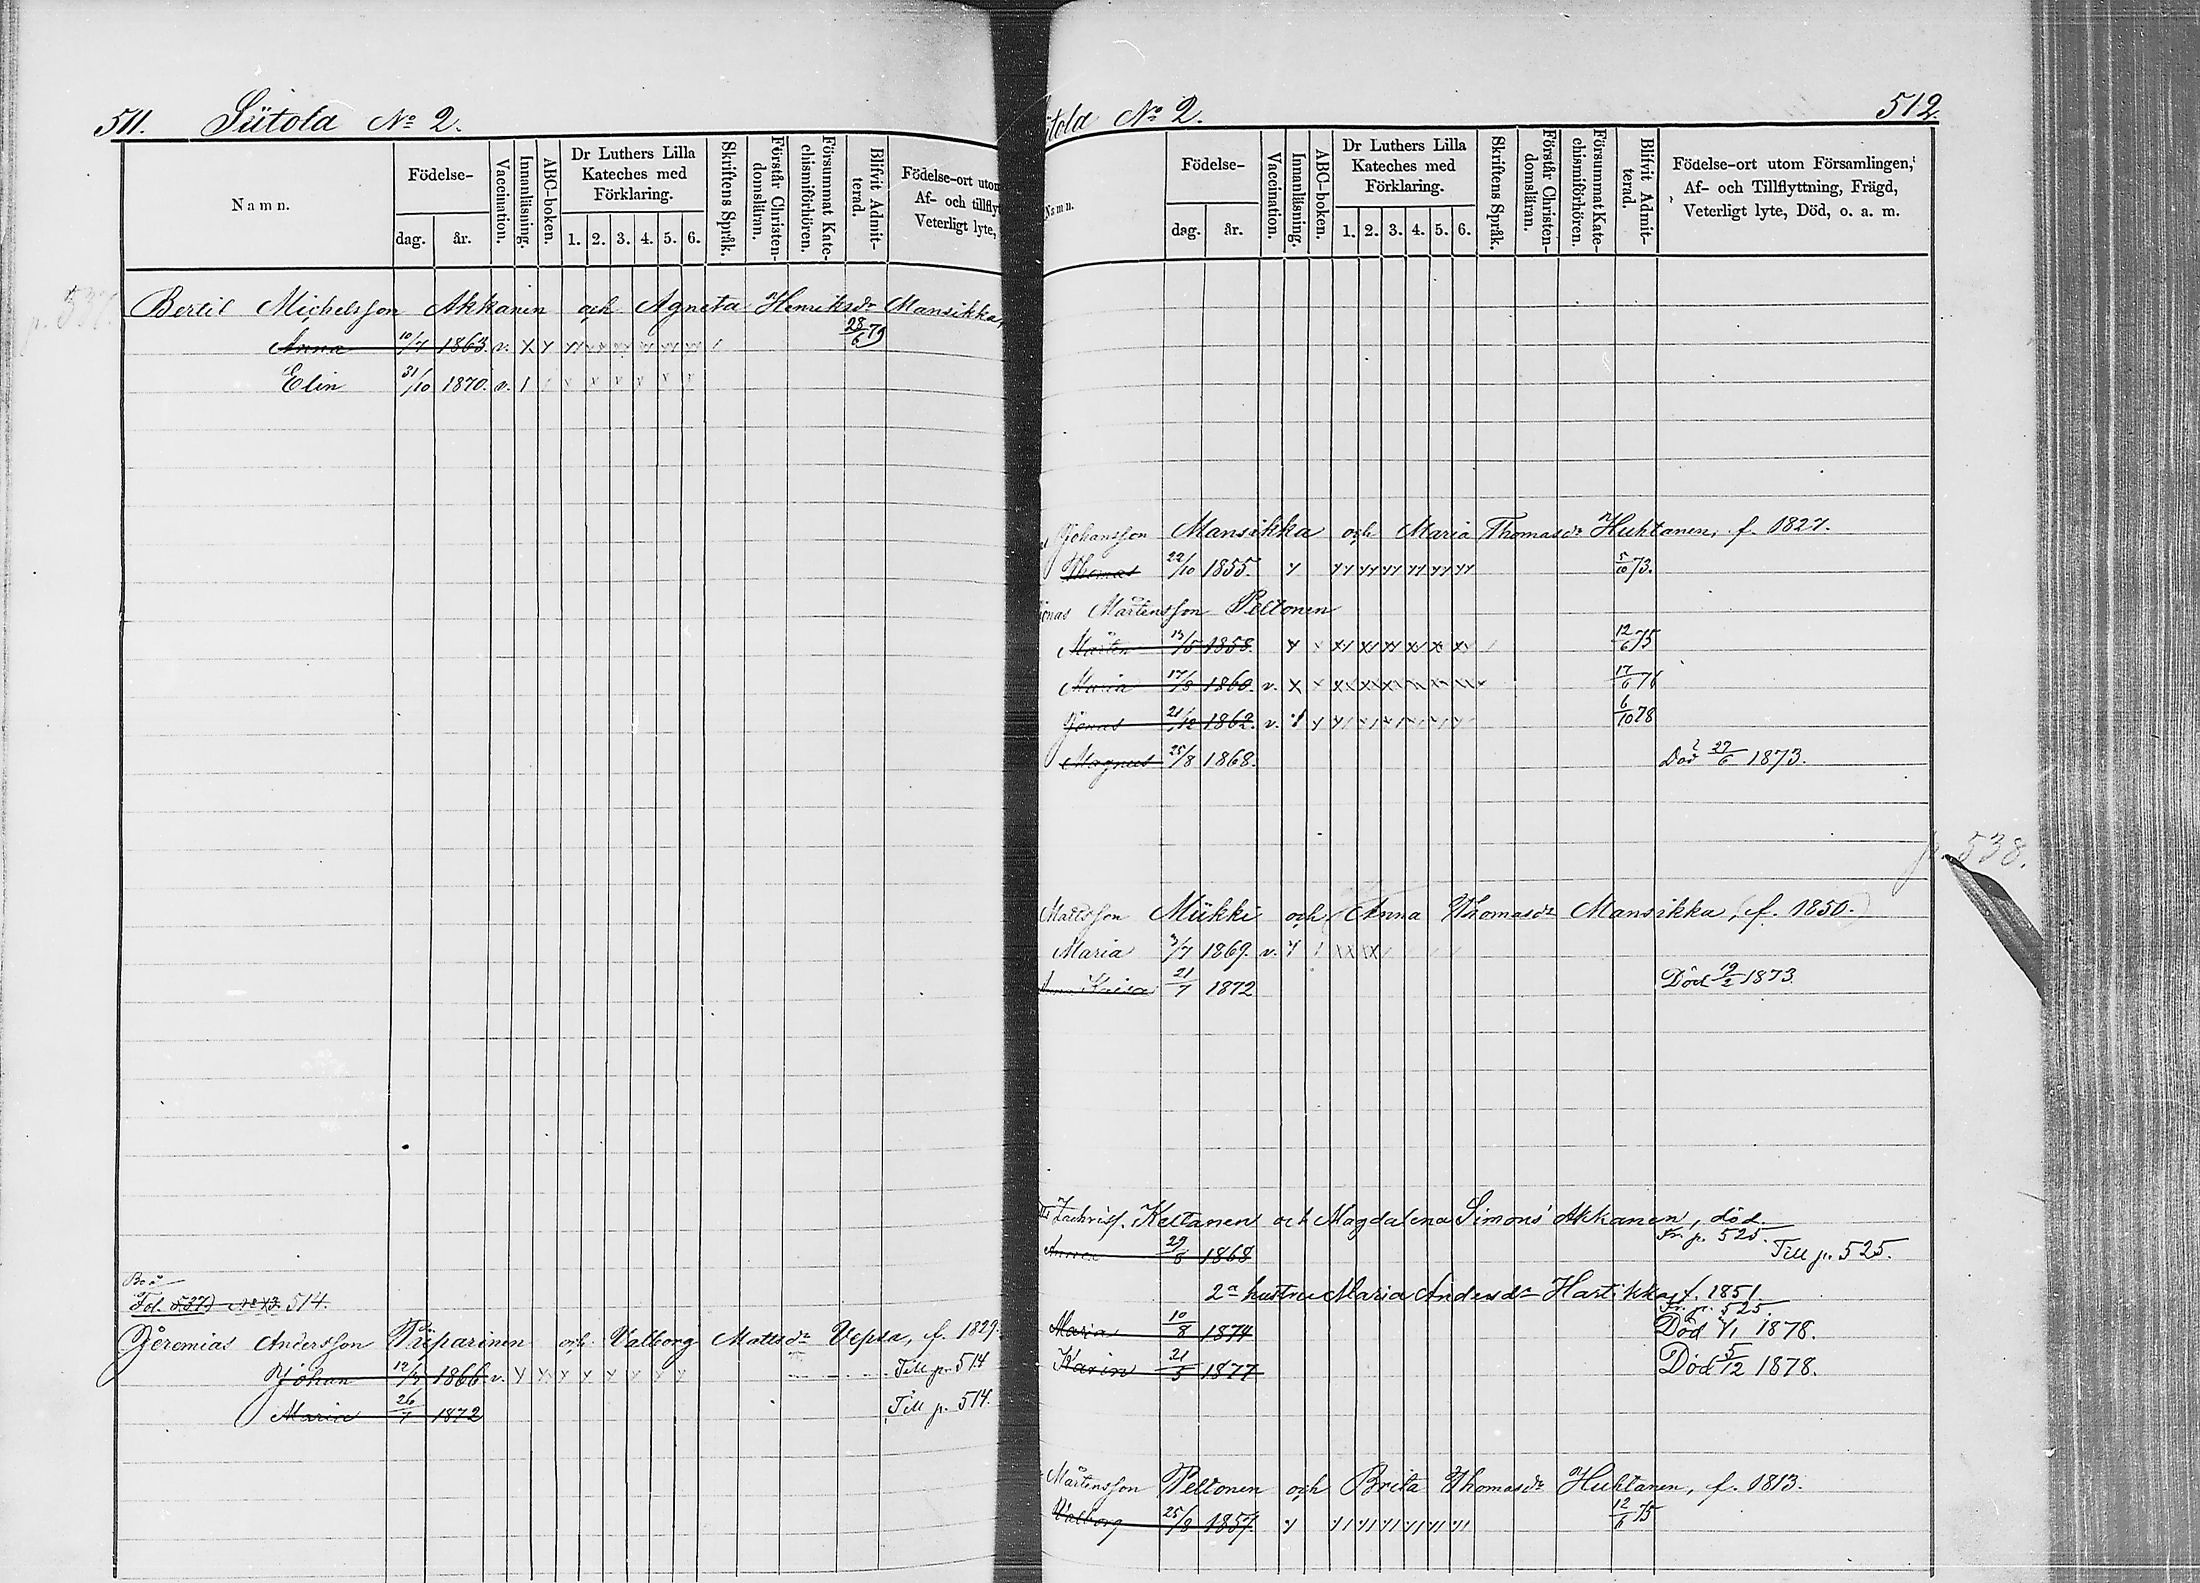 511. Siitola No 2.
Namn.
Födelse-
dag. år.
Vaccination.
Innanläsning.
ABC-boken.
Dr Luthers Lilla
Kateches med
Förklaring.
1. 2. 3. 4. 5. 6.
Skriftens Språk.
Förstår Christen-
domsläran.
Försummat Kate-
chismiförhören.
Blifvit Admit-
terad.
Födelse-ort uton
Af- och tillfly
Veterligt lyte,
p. 537.
Bertil Michelsson Akkanen och Agneta Henriksdr Mansikka,
Anna 10/7 1863. v. 28/6 79
Elin 31/10 1870. v.
Bo å
Fol. 537) No 13. 514.
Jeremias Andersson Piiparinen och Valborg Mattsdr Vepsa, f. 1829.
Johan 12/7 1866 v. Till p. 514
Maria 26/7 1872 Till p. 514.
itola No 2. 512.
Namn.
Födelse-
dag. år.
Vaccination.
Innanläsning.
ABC-boken.
Dr Luthers Lilla
Kateches med
Förklaring.
1. 2. 3. 4. 5. 6.
Skriftens Språk.
Förstår Christen-
domsläran.
Försummat Kate-
chismiförhören.
Blifvit Admit-
terad.
Födelse-ort utom Församlingen,
Af- och Tillflyttning, Frägd,
Veterligt lyte, Död, o. a. m.
Johansson Mansikka och Maria Thomasdr Huhtanen, f. 1827.
Thomas 22/10 1855. 5/10 73.
Jonas Mårtensson Peltonen
Mårten 13/5 1858. 12/6 75
Maria 17/8 1860. v. 17/6 76
Jonas 21/12 1862. v. 6/10 78
Magnus 25/8 1868. Död 27/6 1873.
p. 538.
Mattsson Miikki och Anna Thomasdr Mansikka, (f. 1850.)
Maria 3/7 1869. v.
Anna Kaisa 21/7 1872 Död 19/2 1873.
Zachrisf. Keltanen och Magdalena Simons Akkanen, död.
Fr. p. 525.
Anna 29/8 1868 Till p. 525.
2a hustru Maria Andersdr Hartikka, f. 1851
Fr. p. 525.
Maria 10/8 1874 Död 7/1 1878.
Karin 21/5 1877 Död 5/12 1878.
Mårtensson Peltonen och Brita Thomasdr Huhtanen, f. 1813.
Valborg 25/8 1857 12/6 75